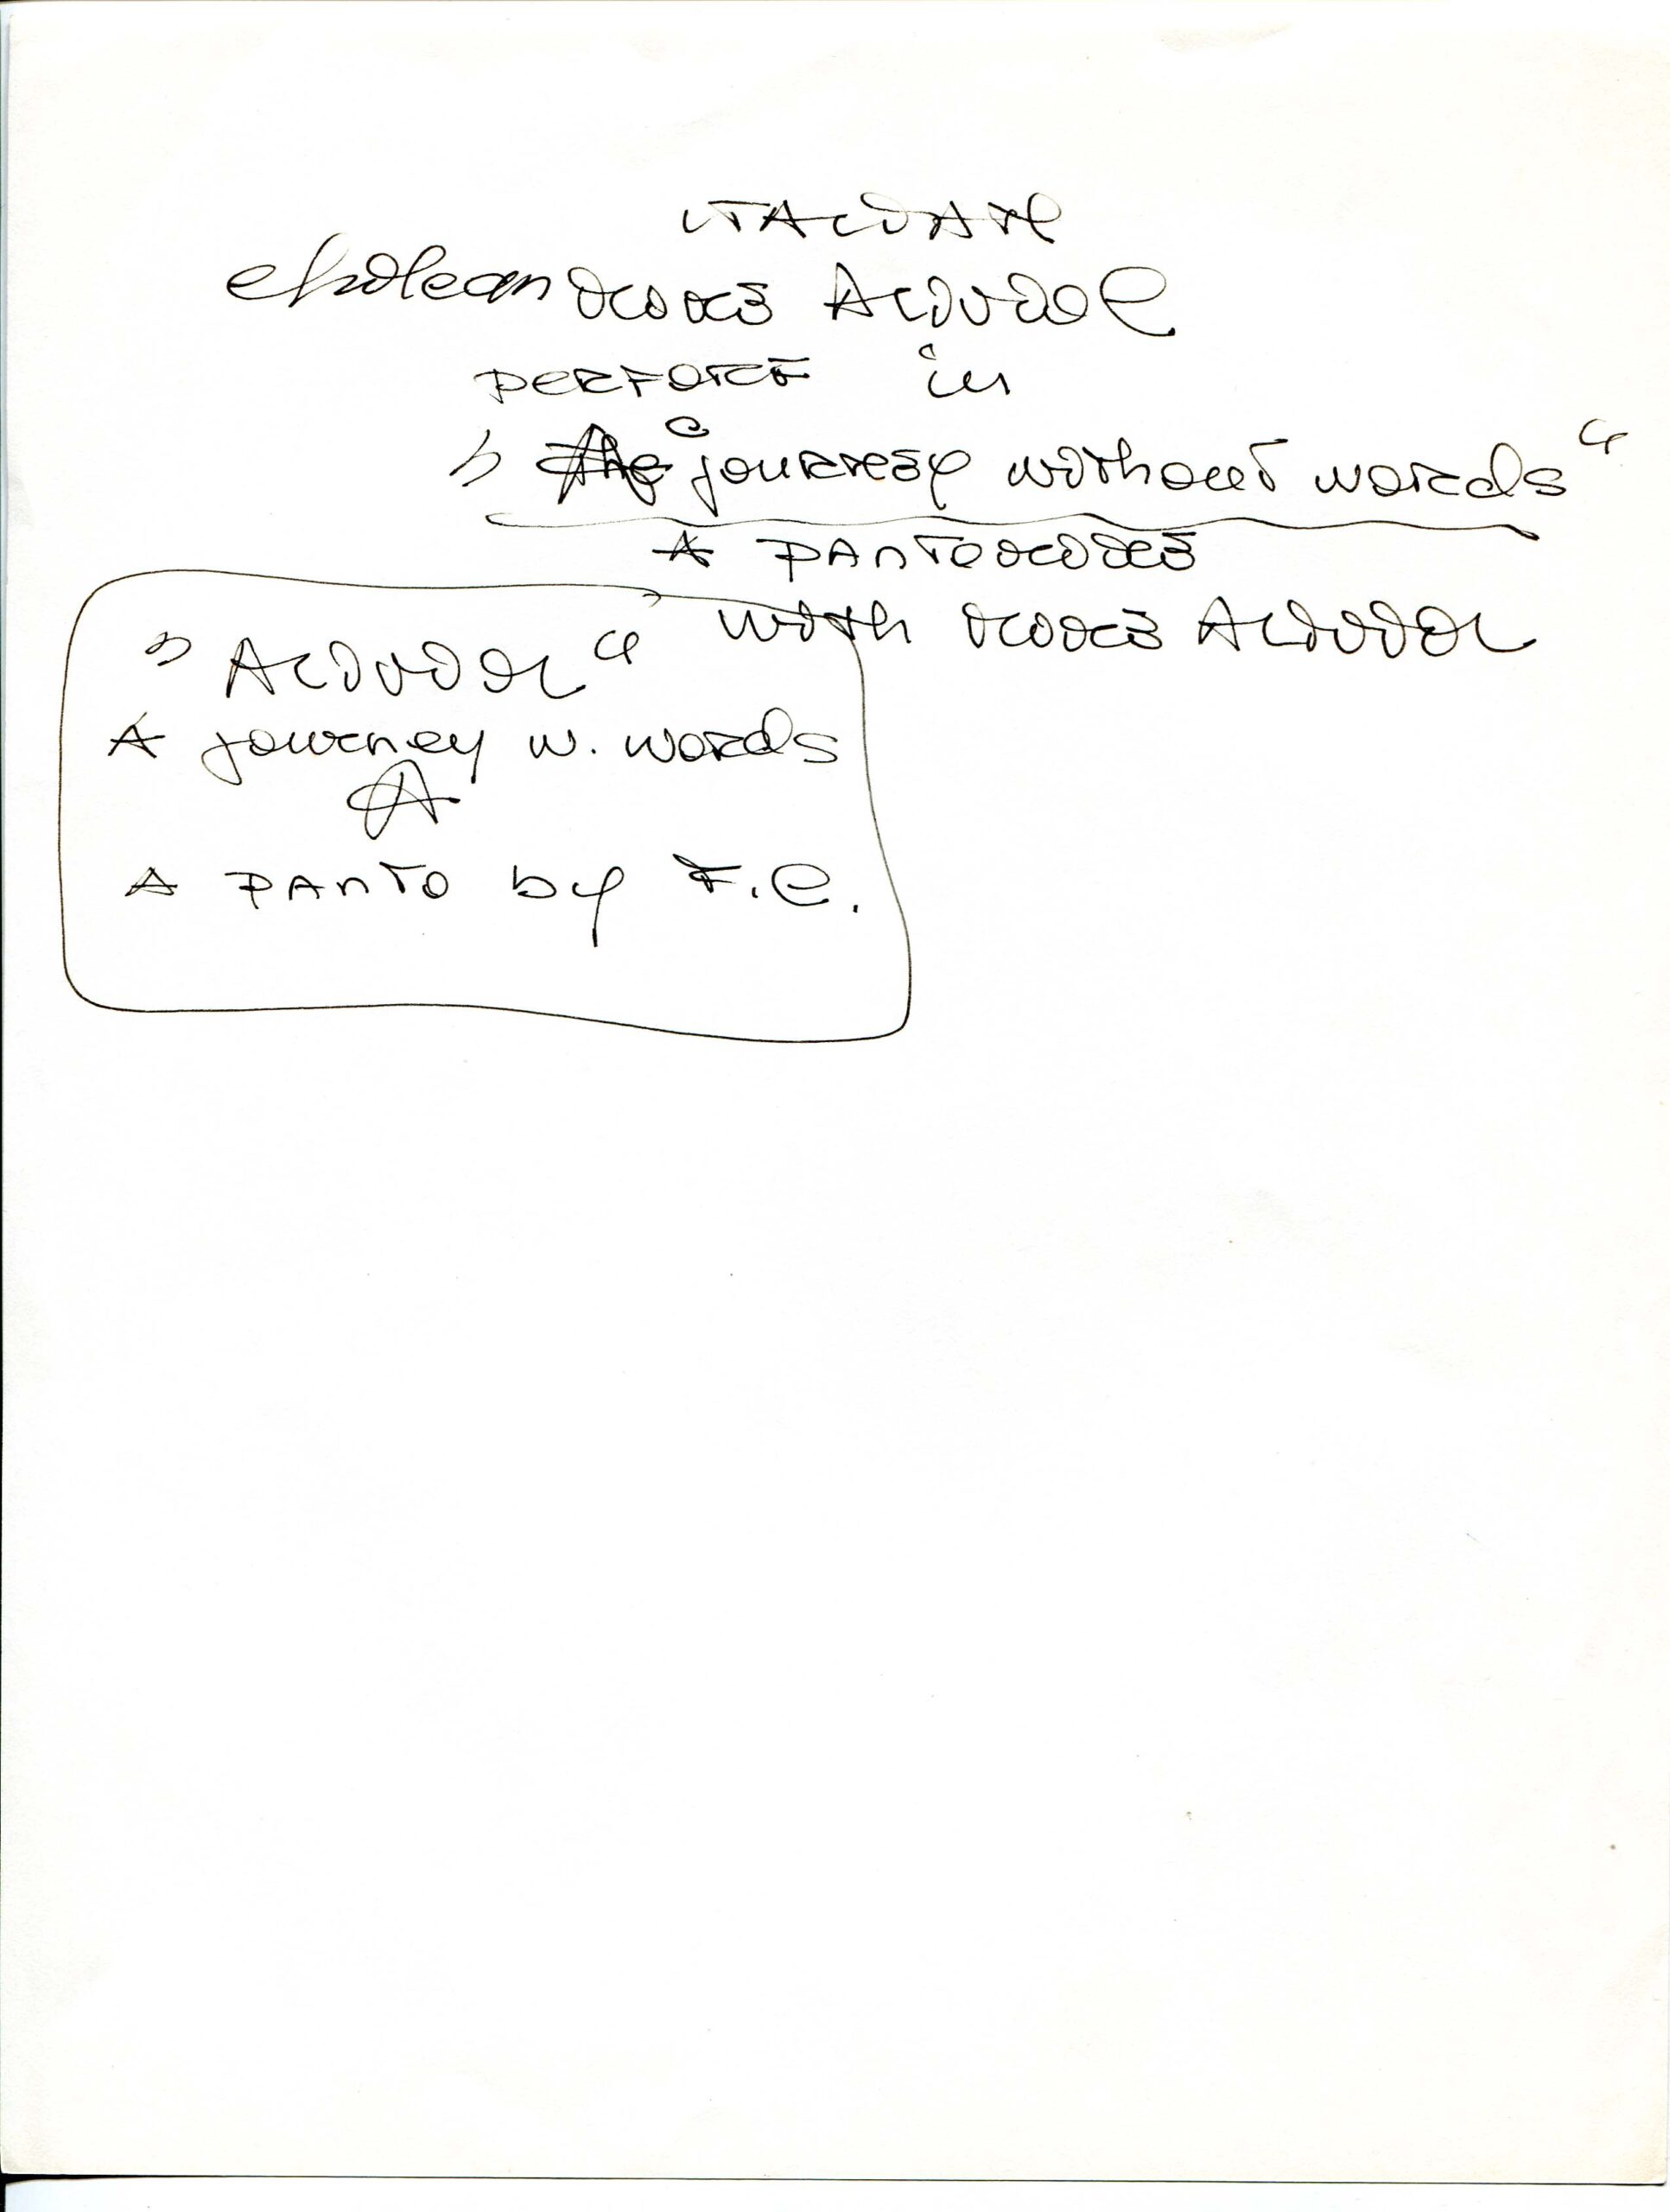 ITALIAN
chilean mime
PERFORM in
" the journey without words "
A PANTOMIME
with mime
A journey w. words
A
A PANTO by F.C.